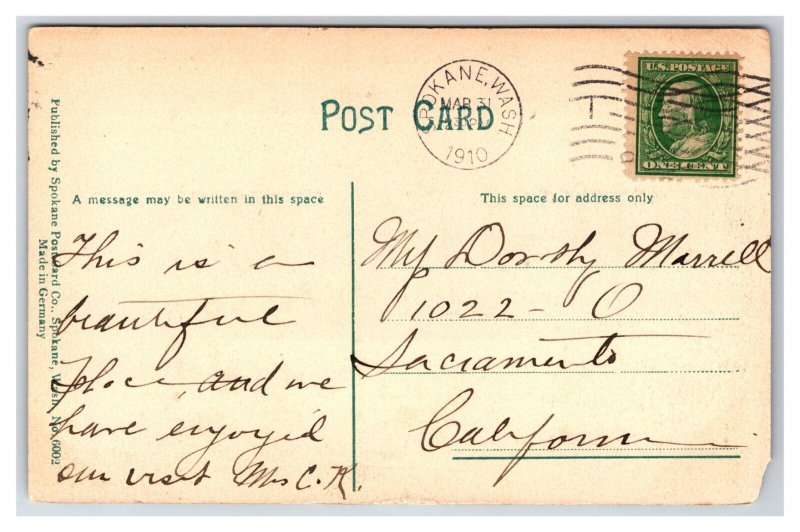 POST CARD
SPOKANE, WASH
MAR 31
1910
U.S. POSTAGE
ONE CENT
A message may be written in this space
This space for address only
This is a
beautiful
place, and we
have enjoyed
our visit Mrs C. K.
Dorothy Marrell
1022 - O
Sacramento
California
Published by Spokane Postcard Co., Spokane, Wash. No. 6002
Made in Germany